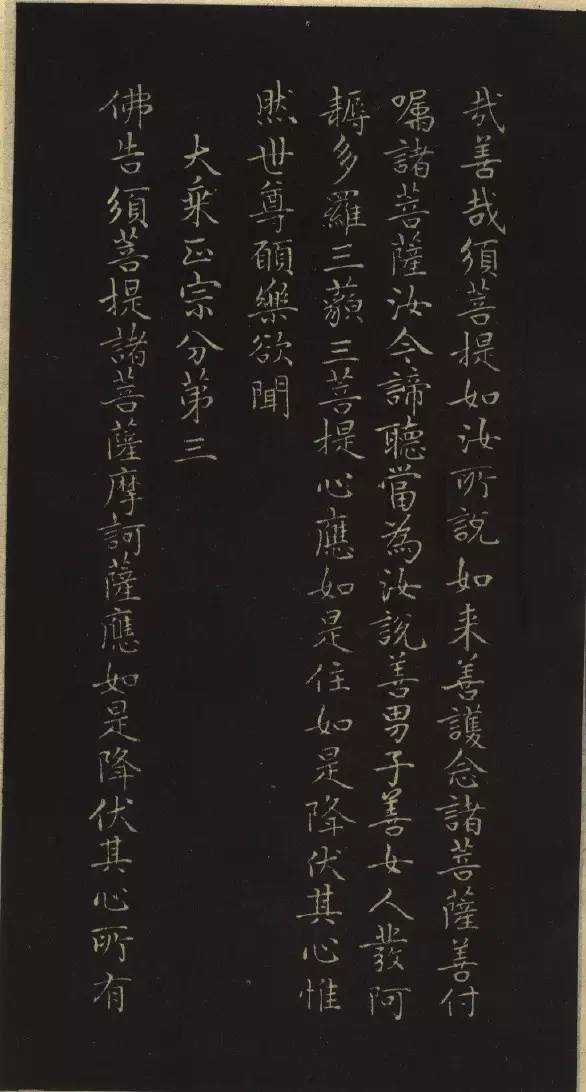 哉善哉須菩提如汝所說如来善護念諸菩薩善付
嘱諸菩薩汝今諦聽當為汝說善男子善女人發阿
耨多羅三藐三菩提心應如是住如是降伏其心惟
然世尊願樂欲聞
大乘正宗分第三
佛告須菩提諸菩薩摩訶薩應如是降伏其心所有